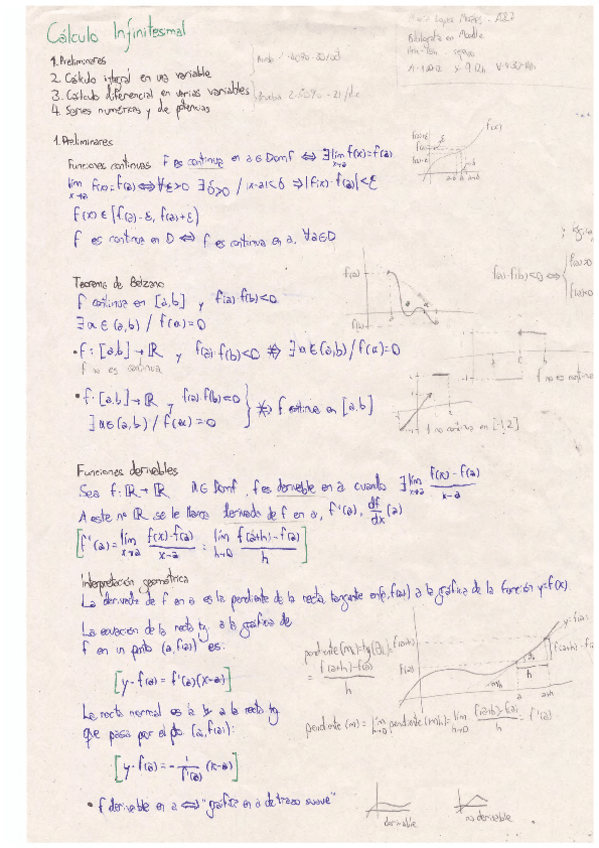 Cálculo Infinitesimal
1. Preliminares
2. Cálculo integral en una variable
3. Cálculo diferencial en varias variables
4. Series numéricas y de potencias
Bibliografía en Moodle
1. Preliminares
Funciones continuas f es continua en a ∈ Dom f ⇔ ∃ lim x→a f(x)=f(a)
lim x→a f(x)=f(a) ⇔ ∀ε>0 ∃δ>0 / |x-a|<δ ⇒ |f(x)-f(a)|<ε
f(x) ∈ [f(a)-ε, f(a)+ε)
f es continua en D ⇔ f es continua en a, ∀a∈D
Teorema de Bolzano
f continua en [a,b] y f(a)·f(b)<0
∃ α ∈ (a,b) / f(α)=0
f(a)·f(b)<0 ⇔
• f: [a,b] → ℝ y f(a)·f(b)<0 ⇏ ∃ α ∈ (a,b) / f(α)=0
f no es continua
f no es continua
• f: [a,b] → ℝ y f(a)·f(b)<0
∃ α ∈ (a,b) / f(α)=0 } ⇏ f continua en [a,b]
f no continua en [-1,2]
Funciones derivables
Sea f: ℝ → ℝ a ∈ Dom f, f es derivable en a cuando ∃ lim x→a f(x)-f(a) / x-a
A este nº ℝ se le llama derivada de f en a, f'(a), df/dx (a)
[f'(a) = lim x→a f(x)-f(a) / x-a = lim h→0 f(a+h)-f(a) / h]
Interpretación geométrica
La derivada de f en a es la pendiente de la recta tangente en (a, f(a)) a la gráfica de la función y=f(x)
La ecuación de la recta tg a la gráfica de
f en un punto (a, f(a)) es:
[y-f(a) = f'(a)(x-a)]
La recta normal es la ⊥ a la recta tg
que pasa por el pto (a, f(a)):
[y-f(a) = -1/f'(a) (x-a)]
pendiente (m) = lim h→0 pendiente (mh) = lim h→0 f(a+h)-f(a) / h = f'(a)
• f derivable en a ⇔ "gráfica en a de trazo suave"
derivable
no derivable